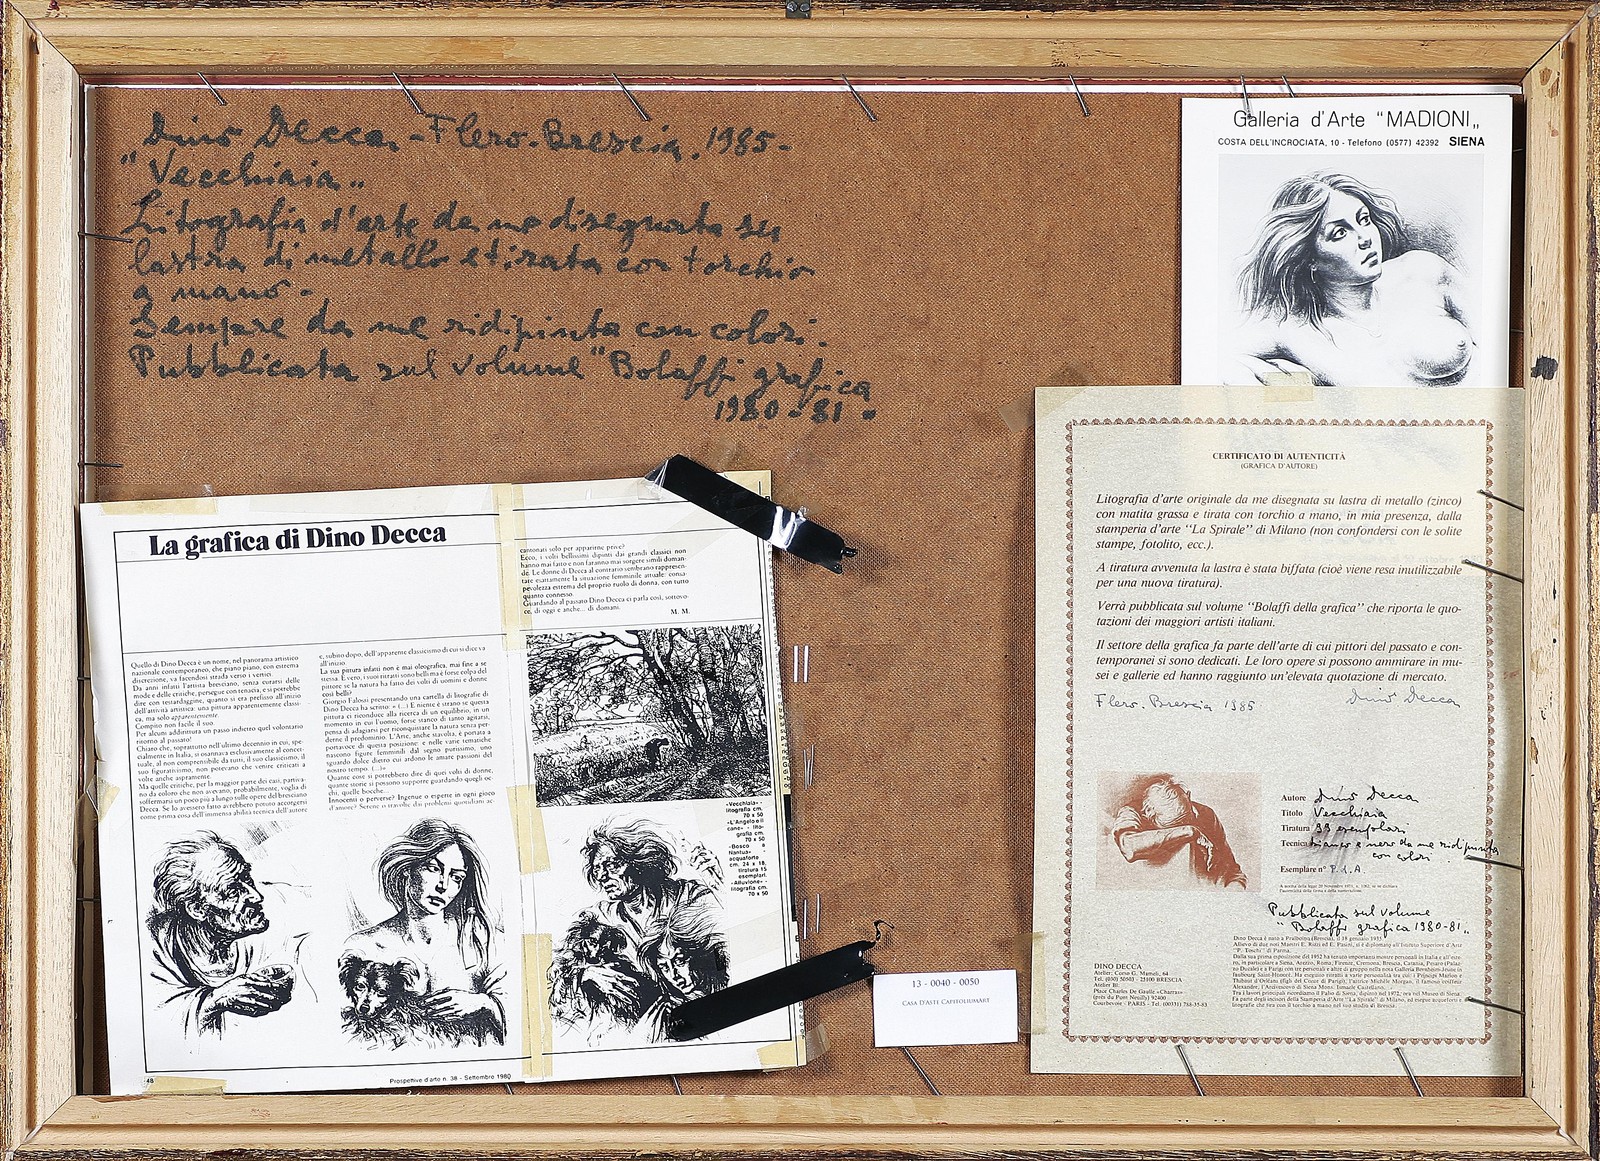 Dino Decca - Flero. Brescia. 1985-
"Vecchiaia"
Litografia d'arte da me disegnata su
lastra di metallo e tirata con torchio
a mano -
Sempre da me ridipinta con colori.
Pubblicata sul volume "Bolaffi grafica
1980-81".
Galleria d'Arte "MADIONI"
COSTA DELL'INCROCIATA, 10 - Telefono (0577) 42392 SIENA
La grafica di Dino Decca
Quello di Dino Decca è un nome, nel panorama artistico
nazionale contemporaneo, che piano piano, con estrema
discrezione, va facendosi strada verso i vertici.
Da anni infatti l'artista bresciano, senza curarsi delle
mode e delle critiche, persegue con tenacia, e si potrebbe
dire con testardaggine, quanto si era prefisso all'inizio
dell'attività artistica: una pittura apparentemente classi-
ca, ma solo apparentemente.
Compito non facile il suo.
Per alcuni addirittura un passo indietro quel volontario
ritorno al passato!
Chiaro che, soprattutto nell'ultimo decennio in cui, spe-
cialmente in Italia, si osannava esclusivamente al concet-
tuale, al non comprensibile da tutti, il suo classicismo, il
suo figurativismo, non potevano che venire criticati a
volte anche aspramente.
Ma quelle critiche, per la maggior parte dei casi, partiva-
no da coloro che non avevano, probabilmente, voglia di
soffermarsi un poco più a lungo sulle opere del bresciano
Decca. Se lo avessero fatto avrebbero potuto accorgersi
come prima cosa dell'immensa abilità tecnica dell'autore
e, subito dopo, dell'apparente classicismo di cui si diceva
all'inizio.
La sua pittura infatti non è mai oleografica, mai fine a se
stessa. È vero, i suoi ritratti sono belli ma è forse colpa del
pittore se la natura ha fatto dei volti di uomini e donne
così belli?
Giorgio Falossi presentando una cartella di litografie di
Dino Decca ha scritto: «(...) E niente è strano se questa
pittura ci riconduce alla ricerca di un equilibrio, in un
momento in cui l'uomo, forse stanco di tanto agitarsi,
pensa di adagiarsi per riconquistare la natura senza per-
derne il predominio. L'Arte, anche stavolta, è portata a
portavoce di questa posizione: e nelle varie tematiche
nascono figure femminili dal segno purissimo, uno
sguardo dolce dietro cui ardono le amare passioni del
nostro tempo. (...)»
Quante cose si potrebbero dire di quei volti di donne,
quante storie si possono supporre guardando quegli oc-
chi, quelle bocche...
Innocenti o perverse? Ingenue o esperte in ogni gioco
d'amore? Serene o travolte dai problemi quotidiani ac-
cantonati solo per apparirne prive?
Ecco, i volti bellissimi dipinti dai grandi classici non
hanno mai fatto e non faranno mai sorgere simili doman-
de. Le donne di Decca al contrario sembrano rappresen-
tare esattamente la situazione femminile attuale: consa-
pevolezza estrema del proprio ruolo di donna, con tutto
quanto connesso.
Guardando al passato Dino Decca ci parla così, sottovo-
ce, di oggi e anche... di domani.
M. M.
«Vecchiaia» -
litografia cm.
70 x 50
«L'Angelo e il
cane» - lito-
grafia cm.
70 x 50
«Bosco a
Nantua» -
acquaforte
cm. 24 x 18,
tiratura 15
esemplari.
«Alluvione» -
litografia cm.
70 x 50
48
Prospettive d'arte n. 38 - Settembre 1980
13 - 0040 - 0050
CASA D'ASTE CAPITOLIUMART
CERTIFICATO DI AUTENTICITÀ
(GRAFICA D'AUTORE)
Litografia d'arte originale da me disegnata su lastra di metallo (zinco)
con matita grassa e tirata con torchio a mano, in mia presenza, dalla
stamperia d'arte "La Spirale" di Milano (non confondersi con le solite
stampe, fotolito, ecc.).
A tiratura avvenuta la lastra è stata biffata (cioè viene resa inutilizzabile
per una nuova tiratura).
Verrà pubblicata sul volume "Bolaffi della grafica" che riporta le quo-
tazioni dei maggiori artisti italiani.
Il settore della grafica fa parte dell'arte di cui pittori del passato e con-
temporanei si sono dedicati. Le loro opere si possono ammirare in mu-
sei e gallerie ed hanno raggiunto un'elevata quotazione di mercato.
Flero. Brescia 1985 Dino Decca
Autore Dino Decca
Titolo Vecchiaia
Tiratura 99 esemplari
Tecnica bianco e nero da me ridipinta
con colori
Esemplare n° P.d.A.
Pubblicata sul volume
"Bolaffi grafica 1980-81"
DINO DECCA
Atelier: Corso G. Mameli, 64
25100 BRESCIA
Place Charles De Gaulle «Charras»
(près du Pont Neuilly) 92400
Courbevoie - PARIS
Dino Decca è nato a Pralboino (Brescia), il 18 gennaio 1935.
Allievo di due noti Maestri E. Rizzi ed E. Pasini, si è diplomato all'Istituto Superiore d'Arte
"P. Toschi" di Parma.